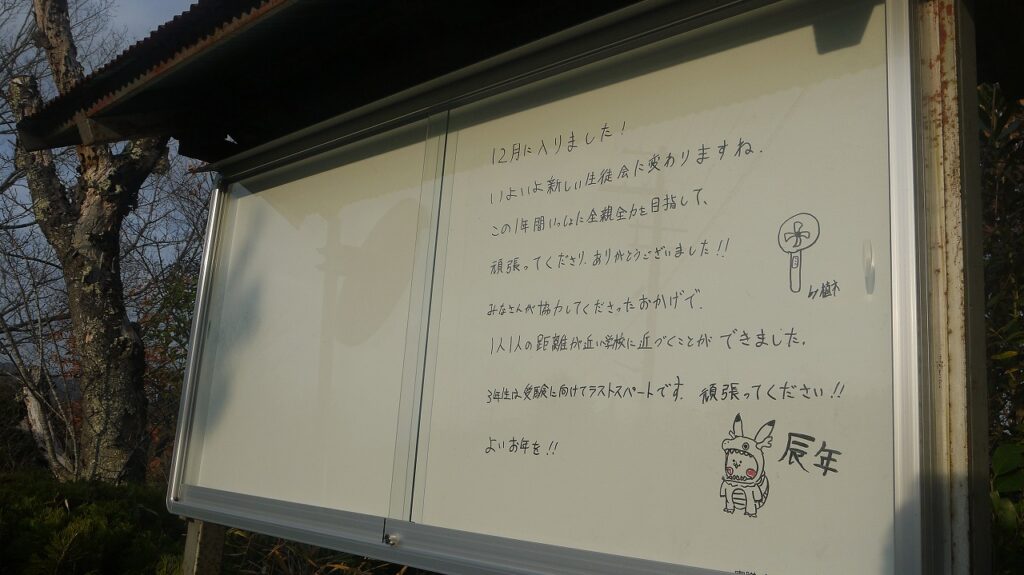 12月に入りました!
いよいよ新しい生徒会に変わりますね.
この1年間いっしょに全親全力を目指して、
頑張ってくださり、ありがとうございました!!
みなさんが協力してくださったおかげで、
1人1人の距離が近い学校に近づくことができました。
3年生は受験に向けてラストスパートです. 頑張ってください!!
よいお年を!!
by
辰年